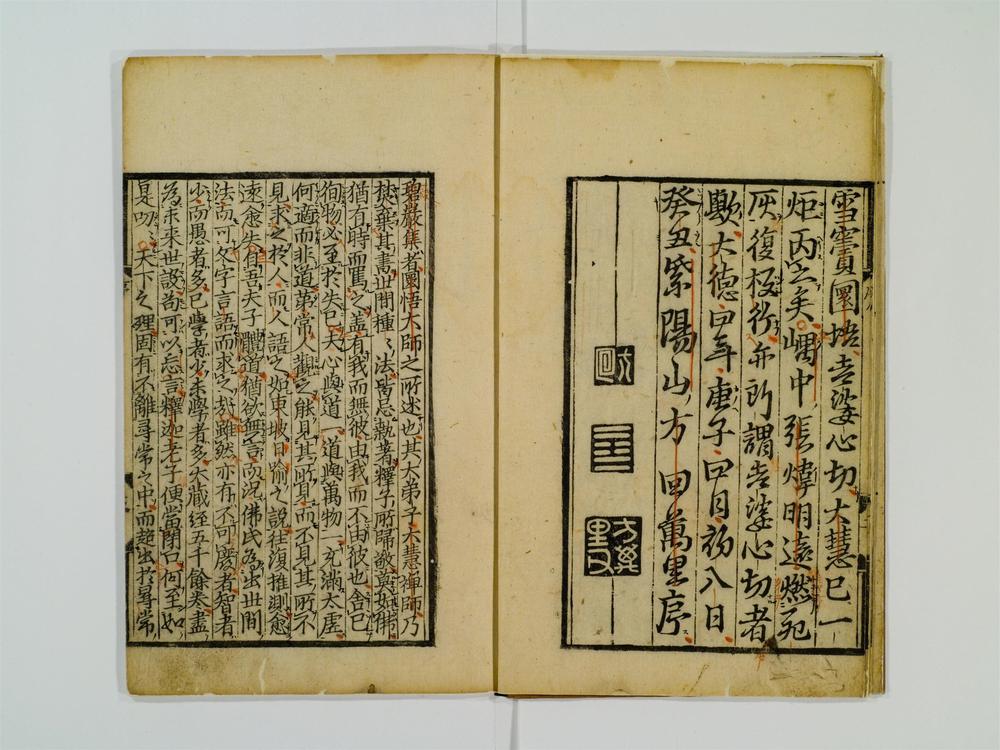 雪竇圜悟老婆心切大慧已一
炬丙之矣嵎中張煒明遠燃死
灰復板行亦所謂老婆心切者
歟大德四年庚子四月初八日
癸丑紫陽山方回萬里序
方回
碧巖集者圜悟大師之所述也其大弟子大慧禪師乃
焚棄其書世間種〻法皆忌執著釋子所歸敬莫如佛
猶有時而罵之蓋有我而無彼由我而不由彼也舍己
徇物必至於失己夫心與道一道與萬物一充滿太虛
何適而非道第常人觀之能見其所見而不見其所不
見求之於人而人語之如東坡日喻之說往復推測愈
遠愈失自吾夫子體道猶欲無言而況佛氏為出世間
法而可文字言語而求之哉雖然亦有不可廢者智者
少而愚者多已學者少未學者多大藏經五千餘卷盡
為未來世設苟可以忘言釋迦老子便當閉口何至如
是叨〻天下之理固有不離尋常之中而超出於尋常